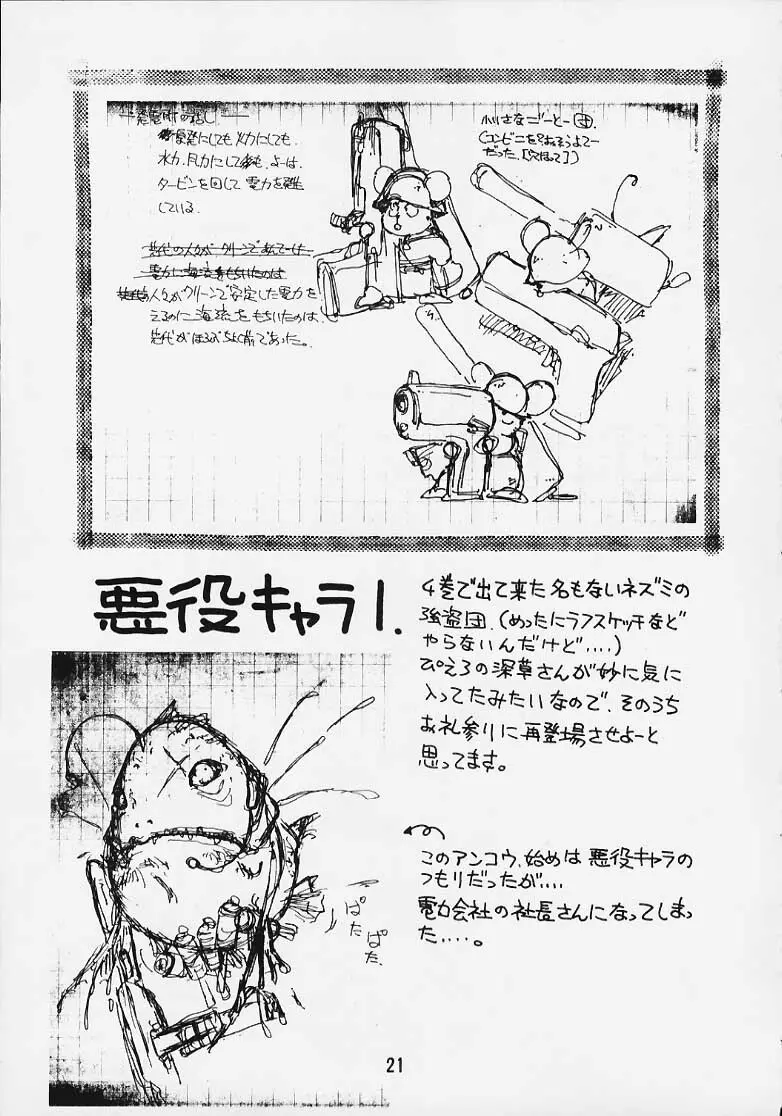 発電所の話し
発にしても火力にしても、
水力、風力にしても、よーは、
タービンを回して電力を難
している。
人々がクリーンで安定した電力を
えるのに海流をもちいたのは、
がほろぶちょい前であった。
小さなごーとー団。
(コンビニをおそうよてー
だった。[穴ほって])
悪役キャラ1.
4巻で出て来た名もないネズミの
強盗団。(めったにラフスケッチなど
やらないんだけど....)
ぴえろの深草さんが妙に気に
入ってたみたいなので、そのうち
お礼参りに再登場させよーと
思ってます。
このアンコウ、始めは悪役キャラの
つもりだったが....
電力会社の社長さんになってしまっ
た....。
ぱた
ぱた
21